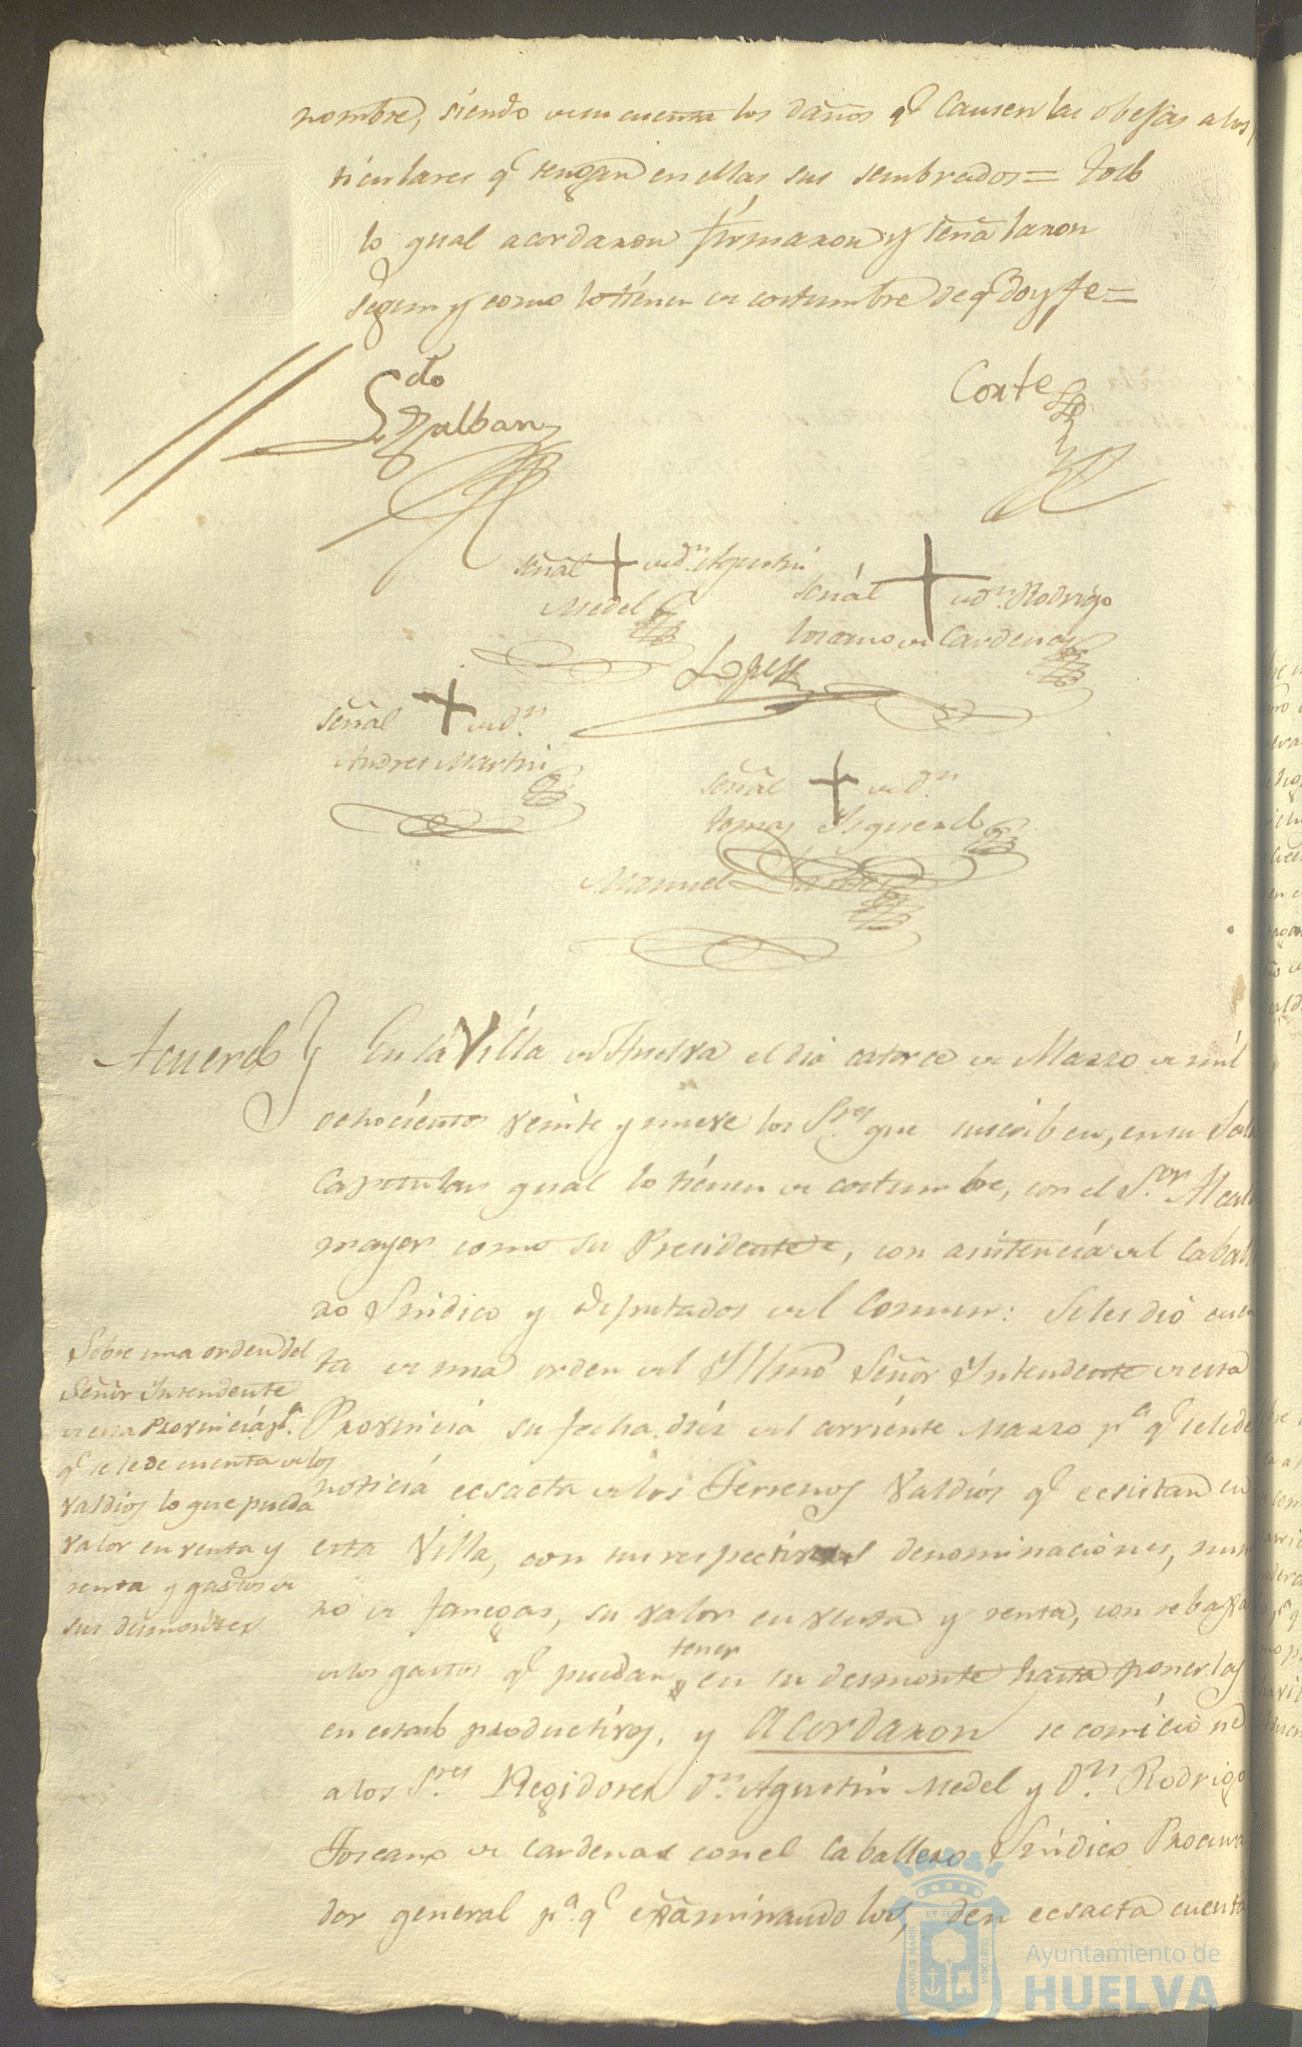 nombre, siendo de su cuenta los daños q.e causen las obejas a los
ticulares q.e tengan en ellas sus sembrados = todo
lo qual acordaron firmaron y señalaron
segun y como lo tienen de costumbre de q.e doy fe =
L.do
Galban
Corte
señal + de d.n Agustin
Medel
señal + de d.n Rodrigo
toscano de Cardenas
Lopez
señal + de d.n
Andres Martin
señal + de d.n
tomas Isquierdo
Manuel
Acuerdo } En la Villa de Huelva el dia catorce de Marzo de mil
ochocientos veinte y nueve los S.res que suscriben, en su Sala
Capitular qual lo tienen de costumbre, con el S.or Alcal
mayor como su Presidente, con asistencia del Caball
ro Sindico y Diputados del Comun: Se les dió cuen
ta de una orden del Yllmo Señor Yntendente de esta
Provincia su fecha diez del corriente Marzo p.a q.e se le de
noticia ecsacta de los Terrenos Valdios q.e ecsistan en
esta Villa, con sus respectivas denominaciones, nume
ro de fanegas, su valor en venta y renta, con rebaxa
de los gastos q.e puedan tener en su desmonte hasta ponerlas
en estado productivos, y Acordaron se comicione
a los S.res Regidores d.n Agustin Medel y D.n Rodrigo
Toscano de Cardenas con el Caballero Sindico Procura
dor general p.a q.e examinandolos, den ecsacta cuenta
Sobre una orden del
Señor Intendente
de esta Provincia p.a
q.e se le de cuenta de los
valdios lo que pueda
valor en venta y
renta y gastos de
sus desmontes
PORTUS MARIS
ET TERRAE
CUSTODIA
Ayuntamiento de
HUELVA